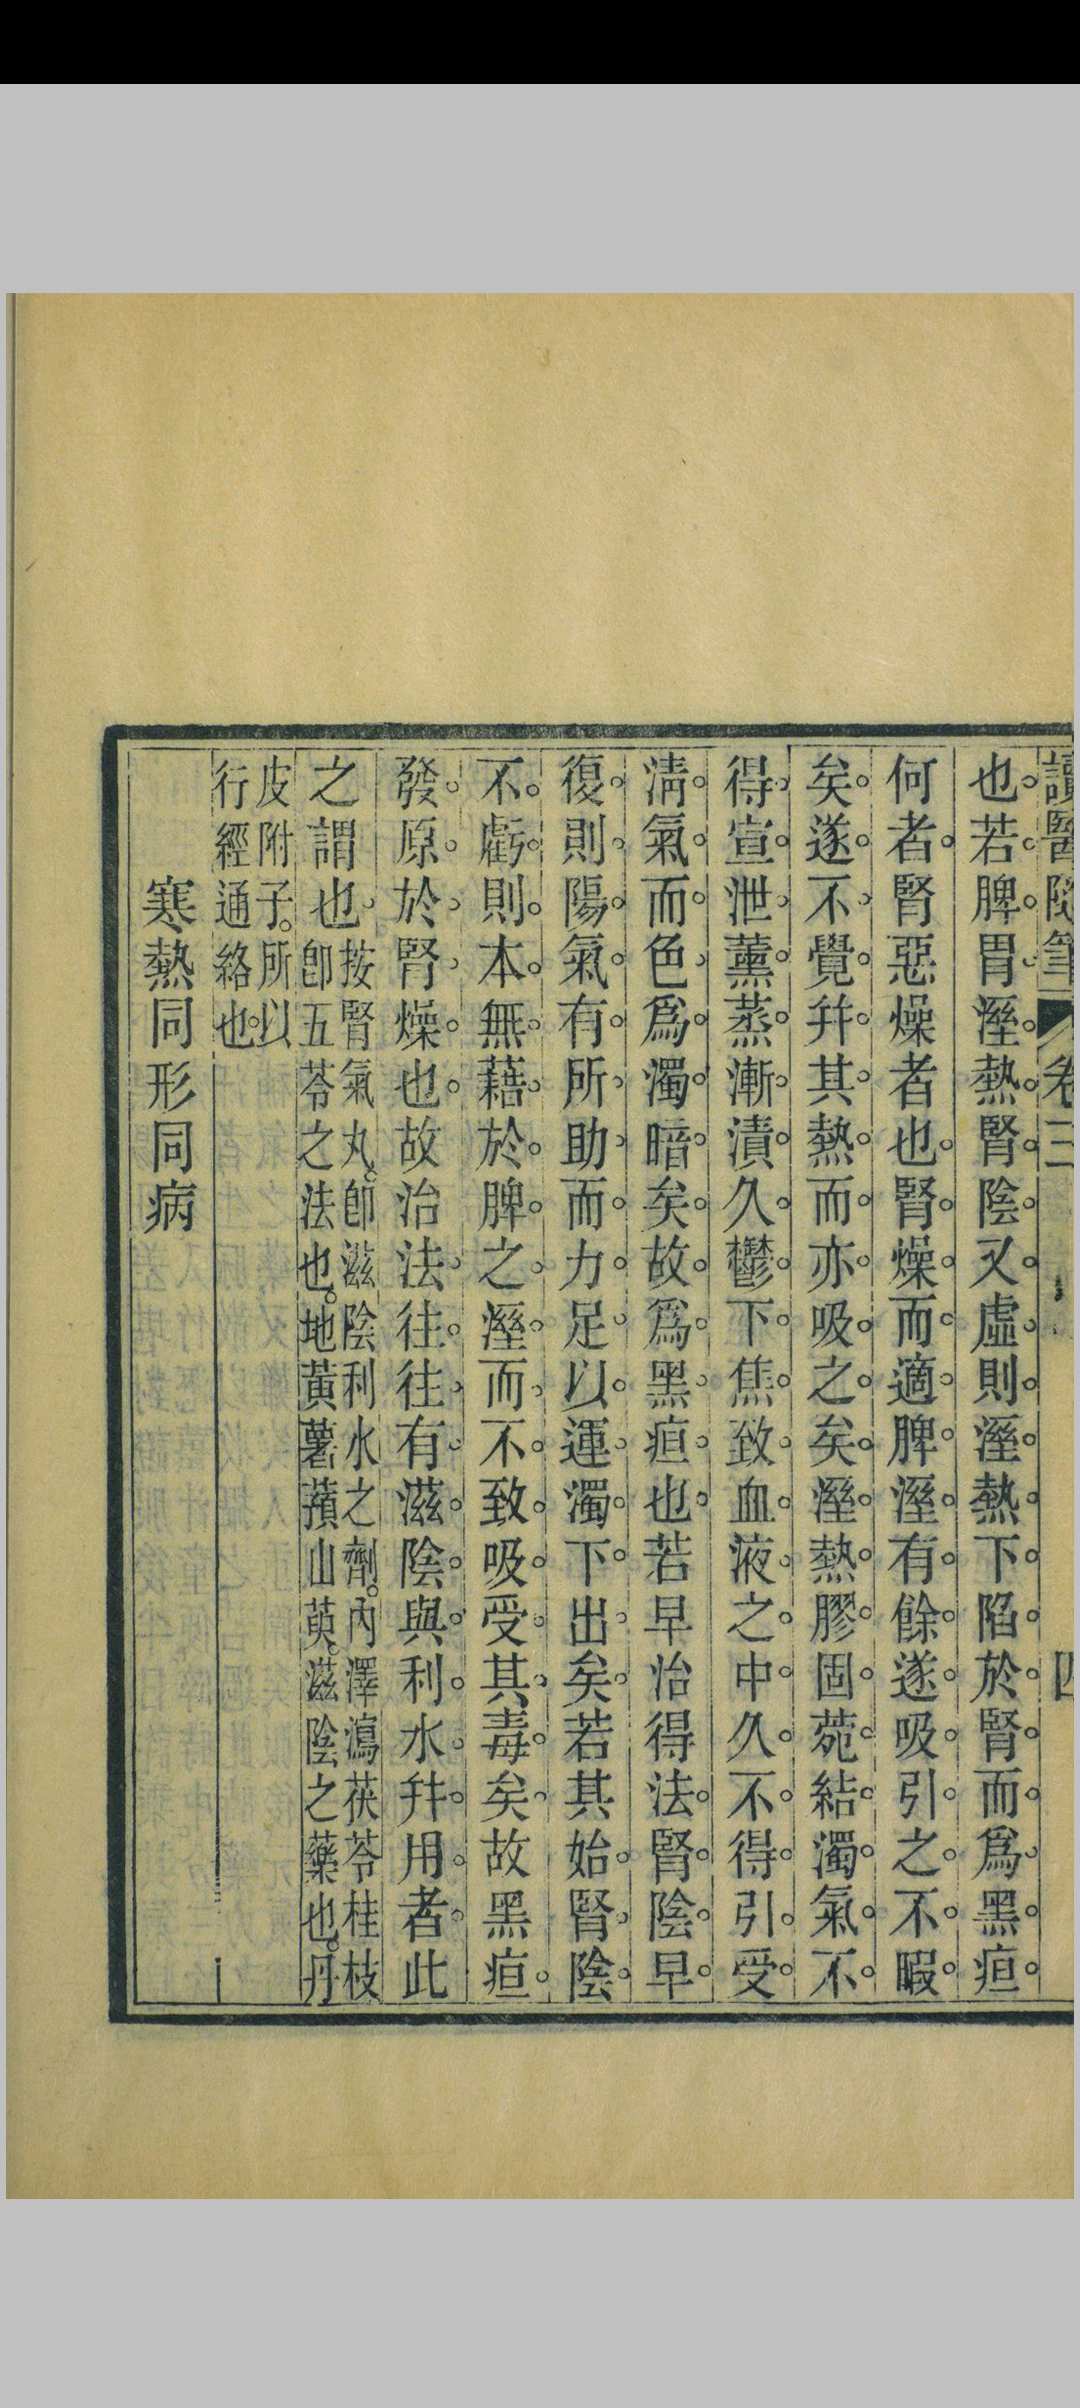 讀醫隨筆 卷三 四
也若脾胃溼熱腎陰又虛則溼熱下陷於腎而爲黑疸
何者腎惡燥者也腎燥而適脾溼有餘遂吸引之不暇
矣遂不覺幷其熱而亦吸之矣溼熱膠固菀結濁氣不
得宣泄薰蒸漸漬久鬱下焦致血液之中久不得引受
淸氣而色爲濁暗矣故爲黑疸也若早治得法腎陰早
復則陽氣有所助而力足以運濁下出矣若其始腎陰
不虧則本無藉於脾之溼而不致吸受其毒矣故黑疸
發原於腎燥也故治法往往有滋陰與利水幷用者此
之謂也
按腎氣丸。卽滋陰利水之劑。內澤瀉茯苓桂枝
卽五苓之法也。地黃薯蕷山萸。滋陰之藥也。丹
皮附子。所以
行經通絡也。
寒熱同形同病